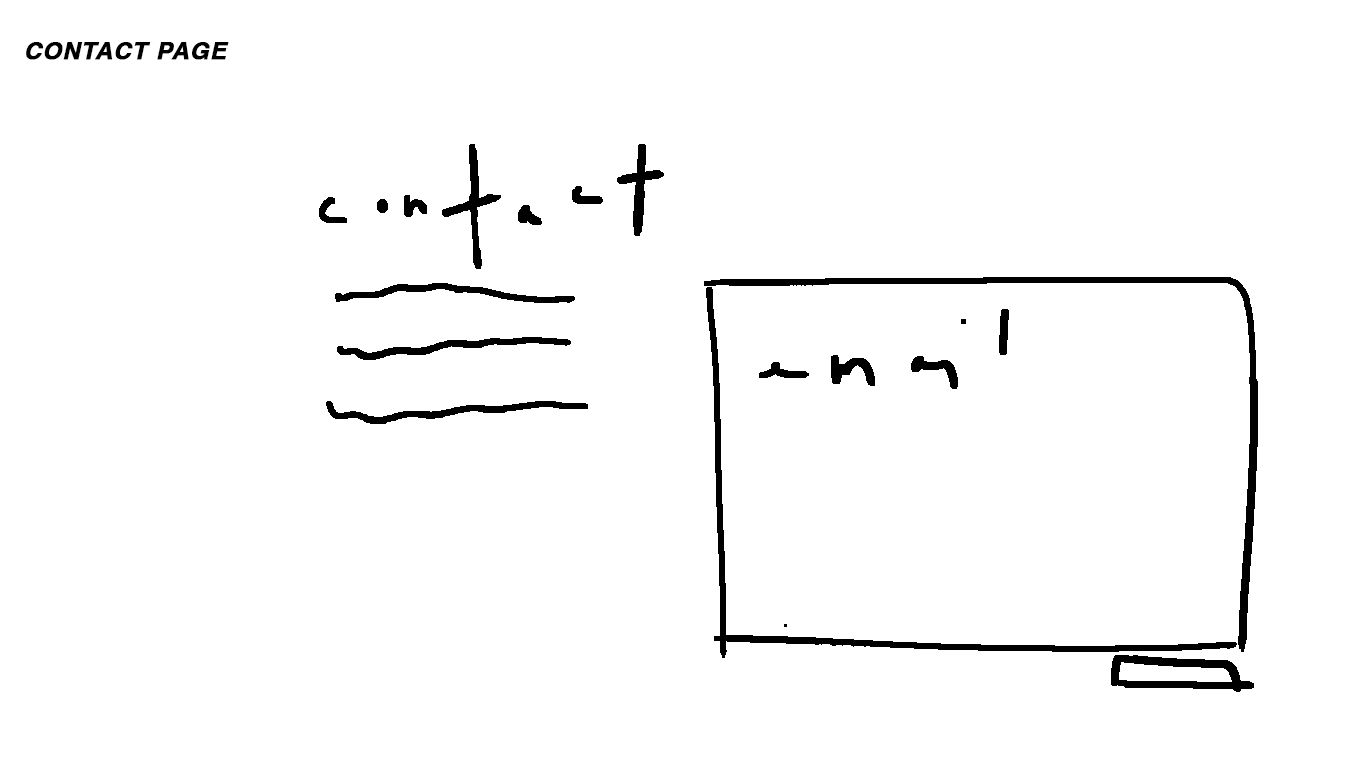 CONTACT PAGE
contact
email